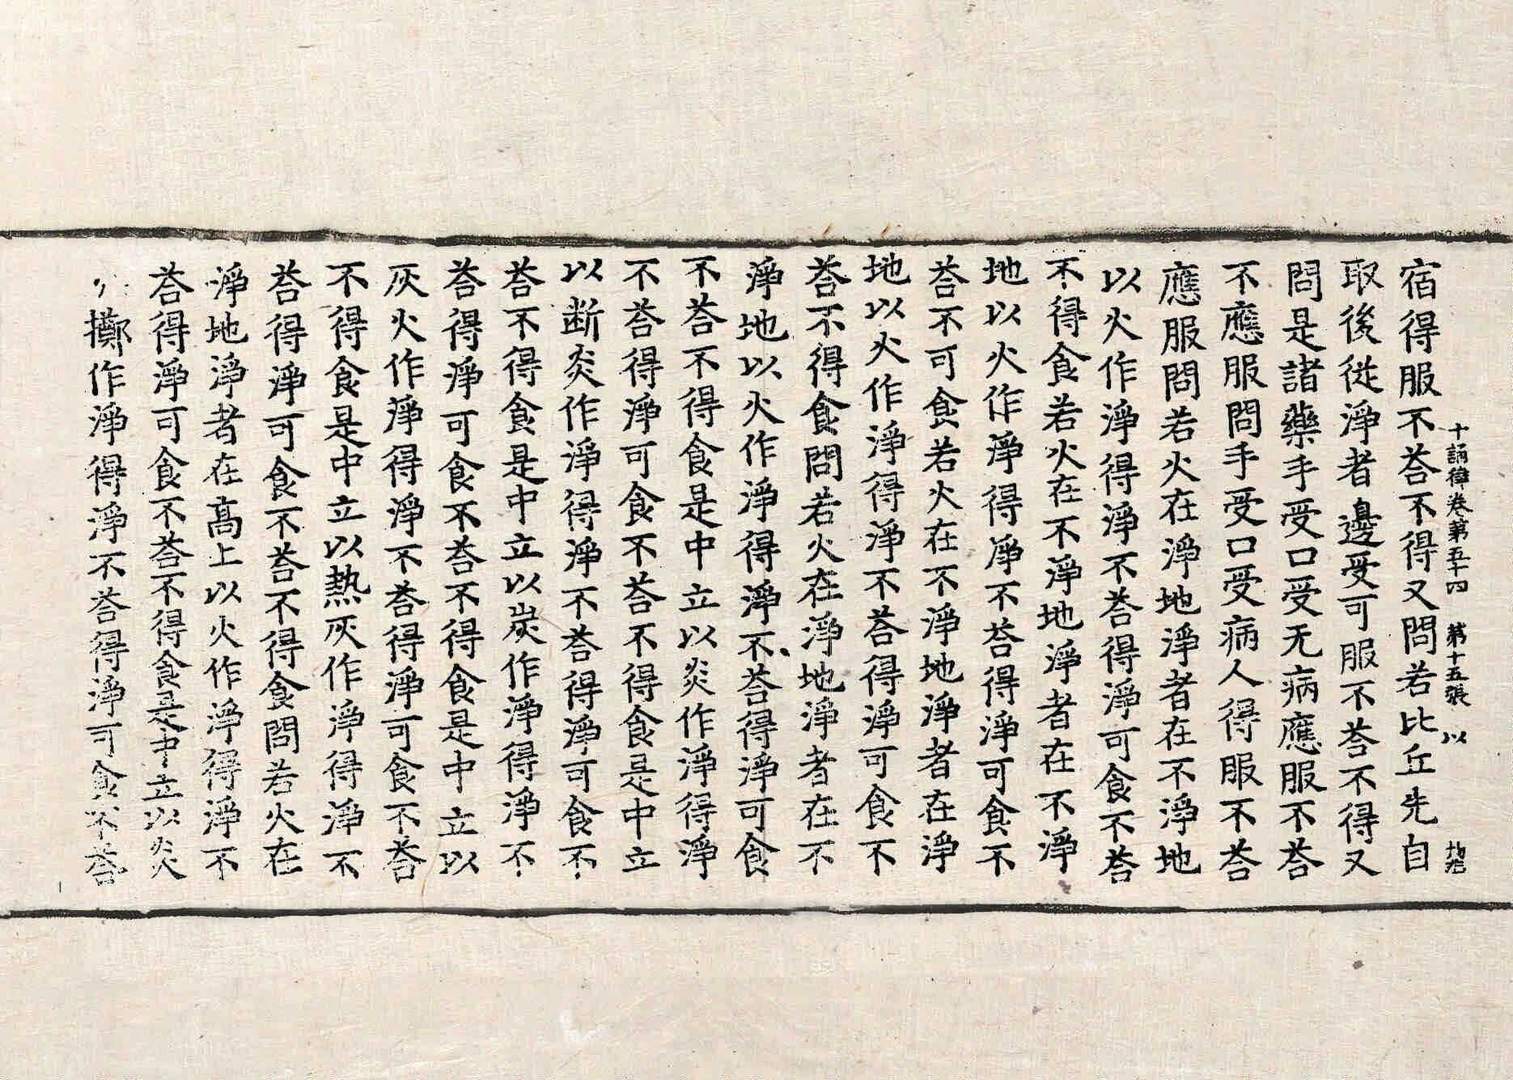 十誦律卷第五十四 第十五張 以
宿得服不荅不得又問若比丘先自
取後從淨者邊受可服不荅不得又
問是諸藥手受口受无病應服不荅
不應服問手受口受病人得服不荅
應服問若火在淨地淨者在不淨地
以火作淨得淨不荅得淨可食不荅
不得食若火在不淨地淨者在不淨
地以火作淨得淨不荅得淨可食不
荅不可食若火在不淨地淨者在淨
地以火作淨得淨不荅得淨可食不
荅不得食問若火在淨地淨者在不
淨地以火作淨得淨不荅得淨可食
不荅不得食是中立以炎作淨得淨
不荅得淨可食不荅不得食是中立
以断炎作淨得淨不荅得淨可食不
荅不得食是中立以炭作淨得淨不
荅得淨可食不荅不得食是中立以
灰火作淨得淨不荅得淨可食不荅
不得食是中立以熱灰作淨得淨不
荅得淨可食不荅不得食問若火在
淨地淨者在高上以火作淨得淨不
荅得淨可食不荅不得食是中立以炎
擲作淨得淨不荅得淨可食不荅